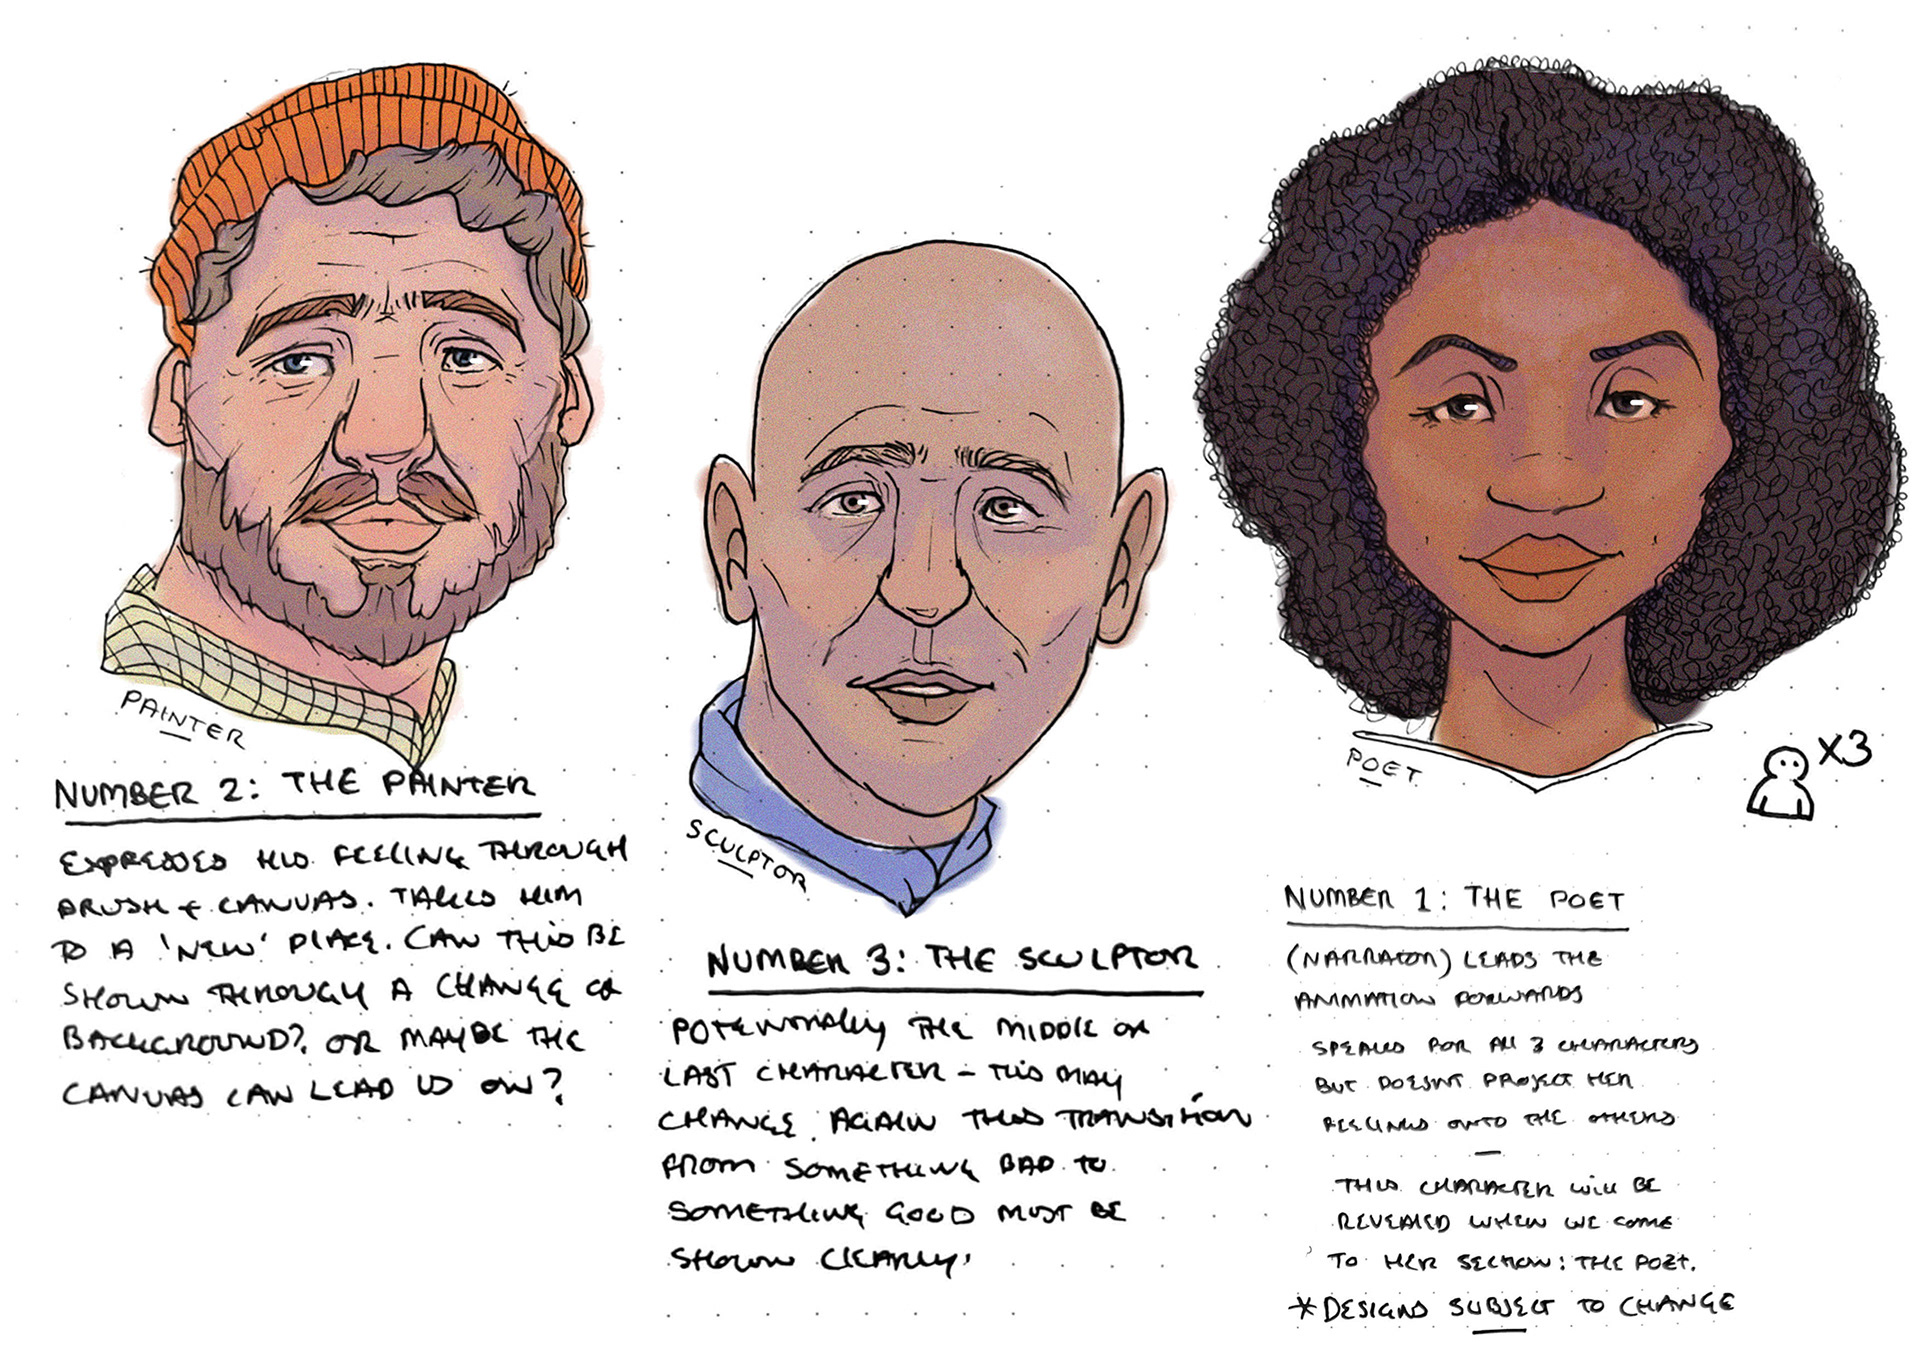 PAINTER
NUMBER 2: THE PAINTER
EXPRESSES HIS FEELING THROUGH
BRUSH + CANVAS. TAKES HIM
TO A 'NEW' PLACE. CAN THIS BE
SHOWN THROUGH A CHANGE OF
BACKGROUND?. OR MAYBE THE
CANVAS CAN LEAD US ON?
SCULPTOR
NUMBER 3: THE SCULPTOR
POTENTIALLY THE MIDDLE OR
LAST CHARACTER - THIS MAY
CHANGE. AGAIN THIS TRANSITION
FROM SOMETHING BAD TO
SOMETHING GOOD MUST BE
SHOWN CLEARLY.
POET
X3
NUMBER 1: THE POET
(NARRATOR) LEADS THE
ANIMATION FORWARDS
SPEAKS FOR ALL 3 CHARACTERS
BUT DOESNT PROJECT HER
FEELINGS ONTO THE OTHERS
THIS CHARACTER WILL BE
REVEALED WHEN WE COME
TO HER SECTION: THE POET.
*DESIGNS SUBJECT TO CHANGE